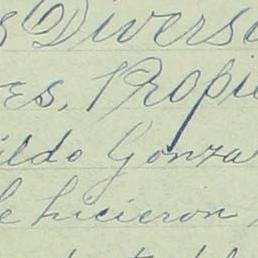 s Diverso
es, Propie
ildo Gonza
le hicieron